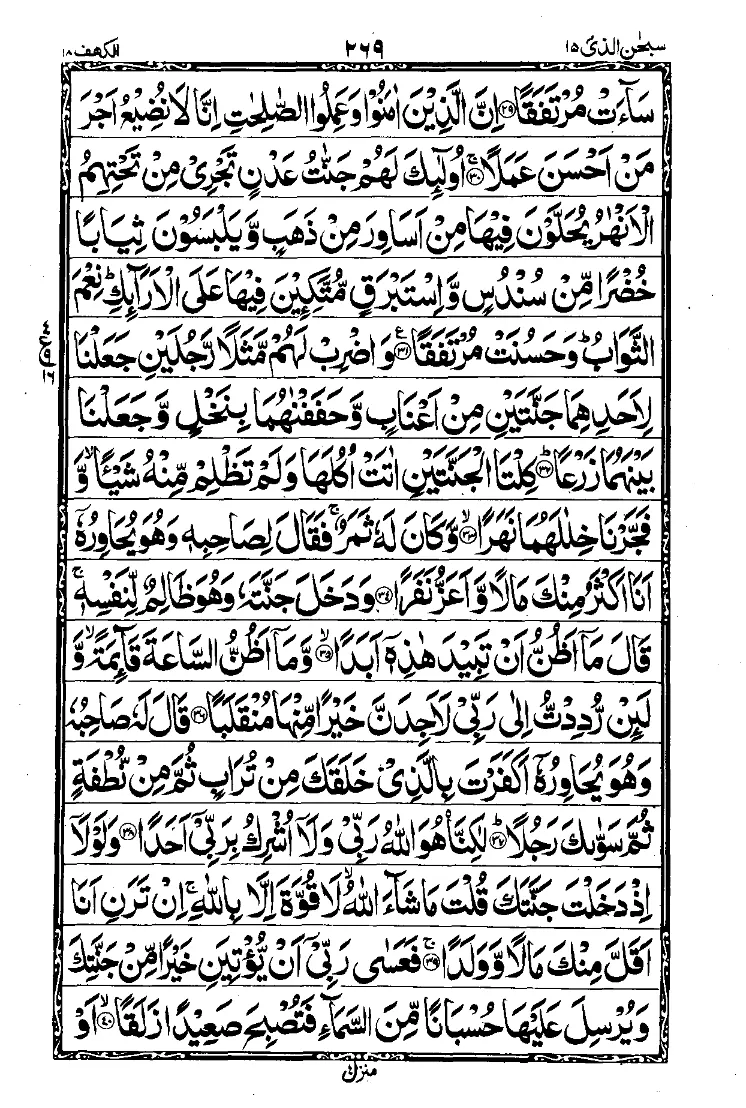 سبحٰن الذیۤ ۱۵ ۲۶۹ الکهف ۱۸
سَآءَتْ مُرْتَفَقًا ﴿۲۹﴾ اِنَّ الَّذِیْنَ اٰمَنُوْا وَعَمِلُوا الصّٰلِحٰتِ اِنَّا لَا نُضِیْعُ اَجْرَ
مَنْ اَحْسَنَ عَمَلًا ﴿۳۰﴾ۚ اُولٰٓئِكَ لَهُمْ جَنّٰتُ عَدْنٍ تَجْرِیْ مِنْ تَحْتِهِمُ
الْاَنْهٰرُ یُحَلَّوْنَ فِیْهَا مِنْ اَسَاوِرَ مِنْ ذَهَبٍ وَّیَلْبَسُوْنَ ثِیَابًا
خُضْرًا مِّنْ سُنْدُسٍ وَّاِسْتَبْرَقٍ مُّتَّكِـِٕیْنَ فِیْهَا عَلَی الْاَرَآئِكِ ؕ نِعْمَ
الثَّوَابُ ؕ وَحَسُنَتْ مُرْتَفَقًا ﴿۳۱﴾ع وَاضْرِبْ لَهُمْ مَّثَلًا رَّجُلَیْنِ جَعَلْنَا
لِاَحَدِهِمَا جَنَّتَیْنِ مِنْ اَعْنَابٍ وَّحَفَفْنٰهُمَا بِنَخْلٍ وَّجَعَلْنَا
بَیْنَهُمَا زَرْعًا ﴿۳۲﴾ؕ كِلْتَا الْجَنَّتَیْنِ اٰتَتْ اُكُلَهَا وَلَمْ تَظْلِمْ مِّنْهُ شَیْـًٔا ۙ وَّ
فَجَّرْنَا خِلٰلَهُمَا نَهَرًا ﴿۳۳﴾ۙ وَّكَانَ لَهٗ ثَمَرٌ ۚ فَقَالَ لِصَاحِبِهٖ وَهُوَ یُحَاوِرُهٗۤ
اَنَا اَكْثَرُ مِنْكَ مَالًا وَّاَعَزُّ نَفَرًا ﴿۳۴﴾ وَدَخَلَ جَنَّتَهٗ وَهُوَ ظَالِمٌ لِّنَفْسِهٖ ۚ
قَالَ مَاۤ اَظُنُّ اَنْ تَبِیْدَ هٰذِهٖۤ اَبَدًا ﴿۳۵﴾ۙ وَّمَاۤ اَظُنُّ السَّاعَةَ قَآئِمَةً ۙ وَّ
لَئِنْ رُّدِدْتُّ اِلٰی رَبِّیْ لَاَجِدَنَّ خَیْرًا مِّنْهَا مُنْقَلَبًا ﴿۳۶﴾ قَالَ لَهٗ صَاحِبُهٗ
وَهُوَ یُحَاوِرُهٗۤ اَكَفَرْتَ بِالَّذِیْ خَلَقَكَ مِنْ تُرَابٍ ثُمَّ مِنْ نُّطْفَةٍ
ثُمَّ سَوّٰىكَ رَجُلًا ﴿۳۷﴾ؕ لٰكِنَّا۠ هُوَ اللّٰهُ رَبِّیْ وَلَاۤ اُشْرِكُ بِرَبِّیْۤ اَحَدًا ﴿۳۸﴾ وَلَوْلَاۤ
اِذْ دَخَلْتَ جَنَّتَكَ قُلْتَ مَا شَآءَ اللّٰهُ ۙ لَا قُوَّةَ اِلَّا بِاللّٰهِ ۚ اِنْ تَرَنِ اَنَا
اَقَلَّ مِنْكَ مَالًا وَّوَلَدًا ﴿۳۹﴾ۚ فَعَسٰی رَبِّیْۤ اَنْ یُّؤْتِیَنِ خَیْرًا مِّنْ جَنَّتِكَ
وَیُرْسِلَ عَلَیْهَا حُسْبَانًا مِّنَ السَّمَآءِ فَتُصْبِحَ صَعِیْدًا زَلَقًا ﴿۴۰﴾ۙ اَوْ
منزل ۴